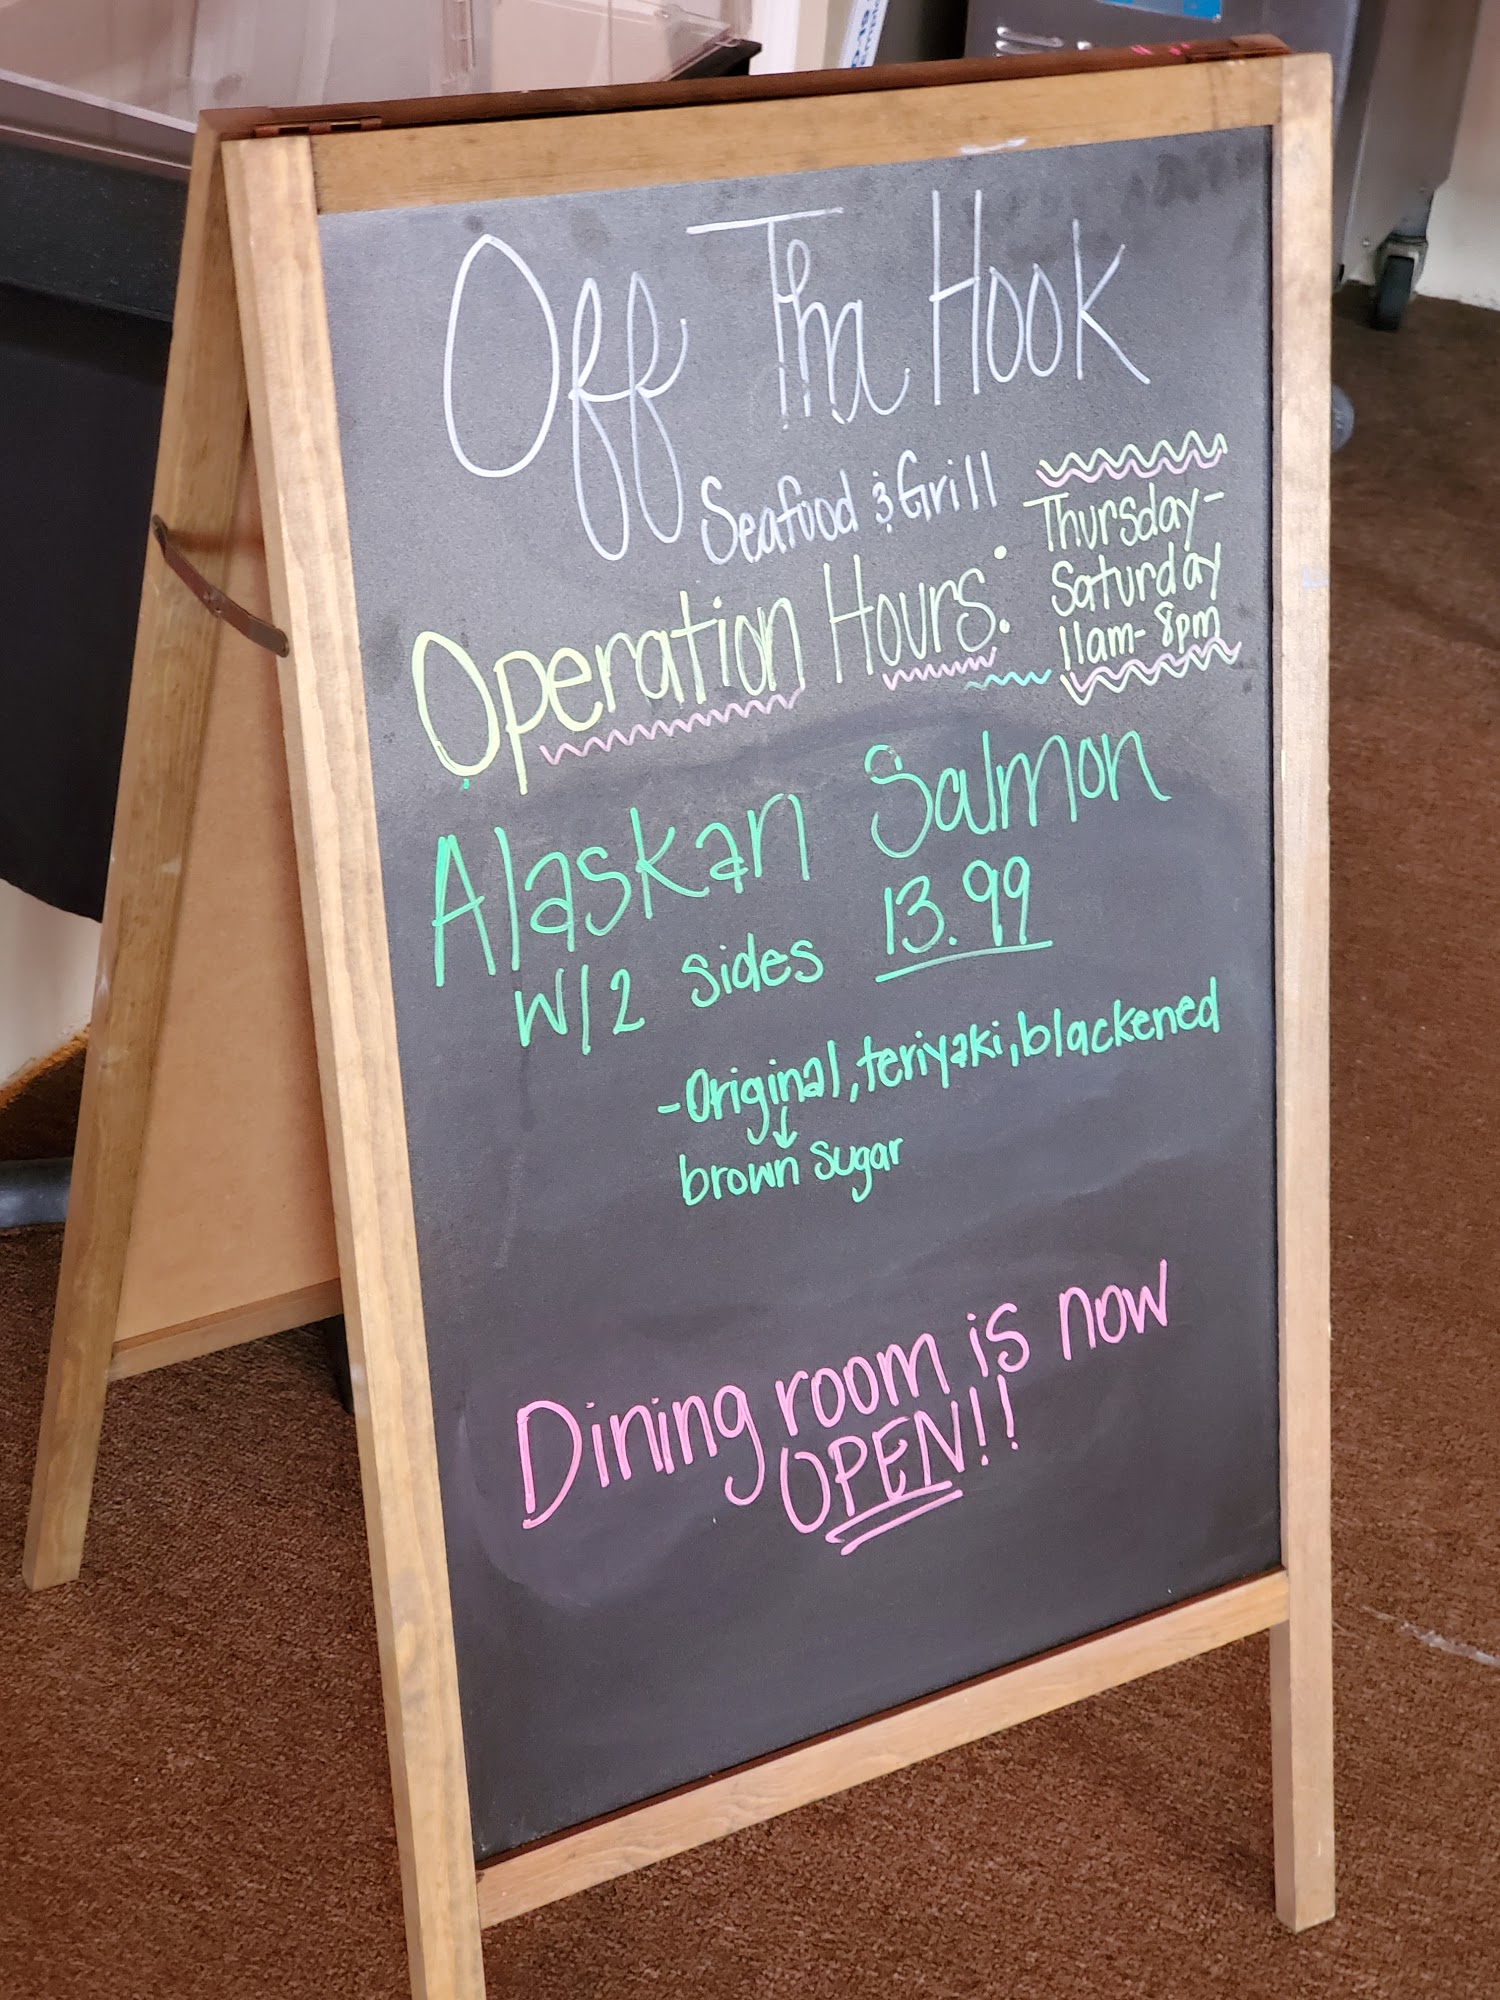 Off Tha Hook
Seafood & Grill
Operation Hours:
Thursday-
Saturday
11am- 8pm
Alaskan Salmon
W/2 sides 13.99
-Original, teriyaki, blackened
↓
brown sugar
Dining room is now
OPEN!!